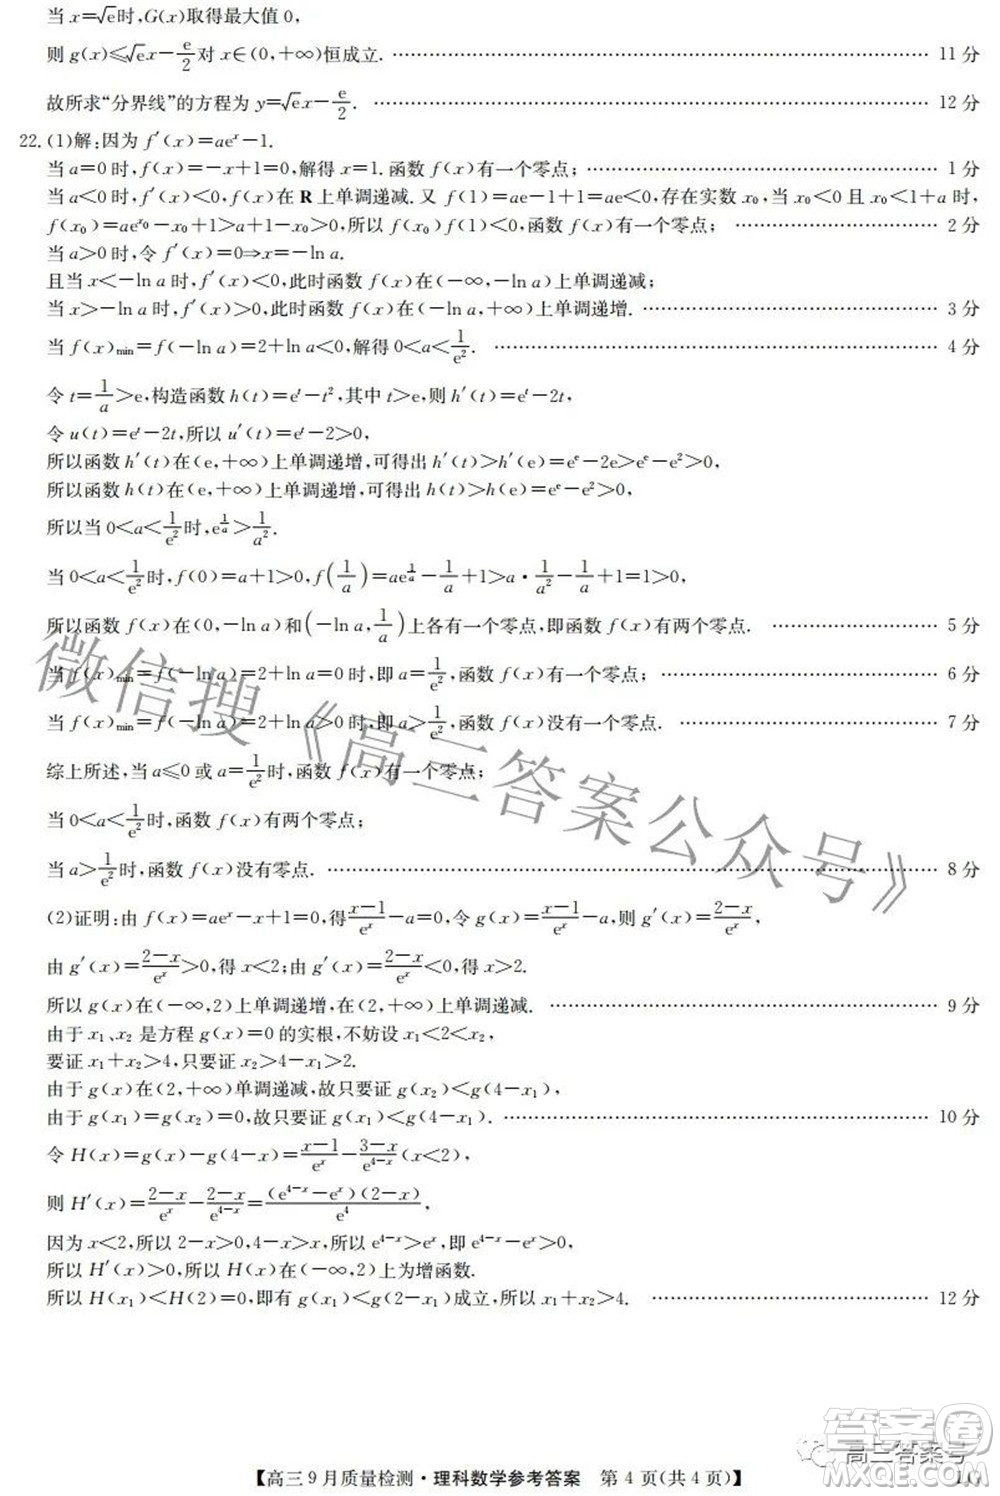 当 x=√e时,G(x)取得最大值 0,
则 g(x)≤√e x−e/2 对 x∈(0,+∞)恒成立. 11 分
故所求“分界线”的方程为 y=√e x−e/2. 12 分
22.(1)解:因为 f′(x)=aeˣ−1.
当 a=0 时,f(x)=−x+1=0,解得 x=1.函数 f(x)有一个零点; 1 分
当 a<0 时,f′(x)<0,f(x)在 R 上单调递减.又 f(1)=ae−1+1=ae<0,存在实数 x₀,当 x₀<0 且 x₀<1+a 时,
f(x₀)=ae^{x₀}−x₀+1>a+1−x₀>0,所以 f(x₀)f(1)<0,函数 f(x)有一个零点; 2 分
当 a>0 时,令 f′(x)=0⇒x=−ln a.
且当 x<−ln a 时,f′(x)<0,此时函数 f(x)在(−∞,−ln a)上单调递减;
当 x>−ln a 时,f′(x)>0,此时函数 f(x)在(−ln a,+∞)上单调递增. 3 分
当 f(x)min=f(−ln a)=2+ln a<0,解得 0<a<1/e². 4 分
令 t=1/a>e,构造函数 h(t)=eᵗ−t²,其中 t>e,则 h′(t)=eᵗ−2t,
令 u(t)=eᵗ−2t,所以 u′(t)=eᵗ−2>0,
所以函数 h′(t)在(e,+∞)上单调递增,可得出 h′(t)>h′(e)=eᵉ−2e>eᵉ−e²>0,
所以函数 h(t)在(e,+∞)上单调递增,可得出 h(t)>h(e)=eᵉ−e²>0,
所以当 0<a<1/e² 时,e^{1/a}>1/a².
当 0<a<1/e² 时,f(0)=a+1>0,f(1/a)=ae^{1/a}−1/a+1>a·1/a²−1/a+1=1>0,
所以函数 f(x)在(0,−ln a)和(−ln a,1/a)上各有一个零点,即函数 f(x)有两个零点. 5 分
当 f(x)min=f(−ln a)=2+ln a=0 时,即 a=1/e²,函数 f(x)有一个零点; 6 分
当 f(x)min=f(−ln a)=2+ln a>0 时,即 a>1/e²,函数 f(x)没有一个零点. 7 分
综上所述,当 a≤0 或 a=1/e² 时,函数 f(x)有一个零点;
当 0<a<1/e² 时,函数 f(x)有两个零点;
当 a>1/e² 时,函数 f(x)没有零点. 8 分
(2)证明:由 f(x)=aeˣ−x+1=0,得(x−1)/eˣ−a=0,令 g(x)=(x−1)/eˣ−a,则 g′(x)=(2−x)/eˣ,
由 g′(x)=(2−x)/eˣ>0,得 x<2;由 g′(x)=(2−x)/eˣ<0,得x>2.
所以 g(x)在(−∞,2)上单调递增,在(2,+∞)上单调递减. 9 分
由于 x₁、x₂ 是方程 g(x)=0 的实根,不妨设 x₁<2<x₂,
要证 x₁+x₂>4,只要证 x₂>4−x₁>2.
由于 g(x)在(2,+∞)单调递减,故只要证 g(x₂)<g(4−x₁),
由于 g(x₁)=g(x₂)=0,故只要证 g(x₁)<g(4−x₁). 10 分
令 H(x)=g(x)−g(4−x)=(x−1)/eˣ−(3−x)/e^{4−x}(x<2),
则 H′(x)=(2−x)/eˣ−(2−x)/e^{4−x}=(e^{4−x}−eˣ)(2−x)/e⁴,
因为 x<2,所以 2−x>0,4−x>x,所以 e^{4−x}>eˣ,即 e^{4−x}−eˣ>0,
所以 H′(x)>0,所以 H(x)在(−∞,2)上为增函数.
所以 H(x₁)<H(2)=0,即有 g(x₁)<g(2−x₁)成立,所以 x₁+x₂>4. 12 分
微信搜《高三答案公众号》
答案卷
高三答案号
【高三 9 月质量检测·理科数学参考答案 第 4 页(共 4 页)】
MXQE.COM